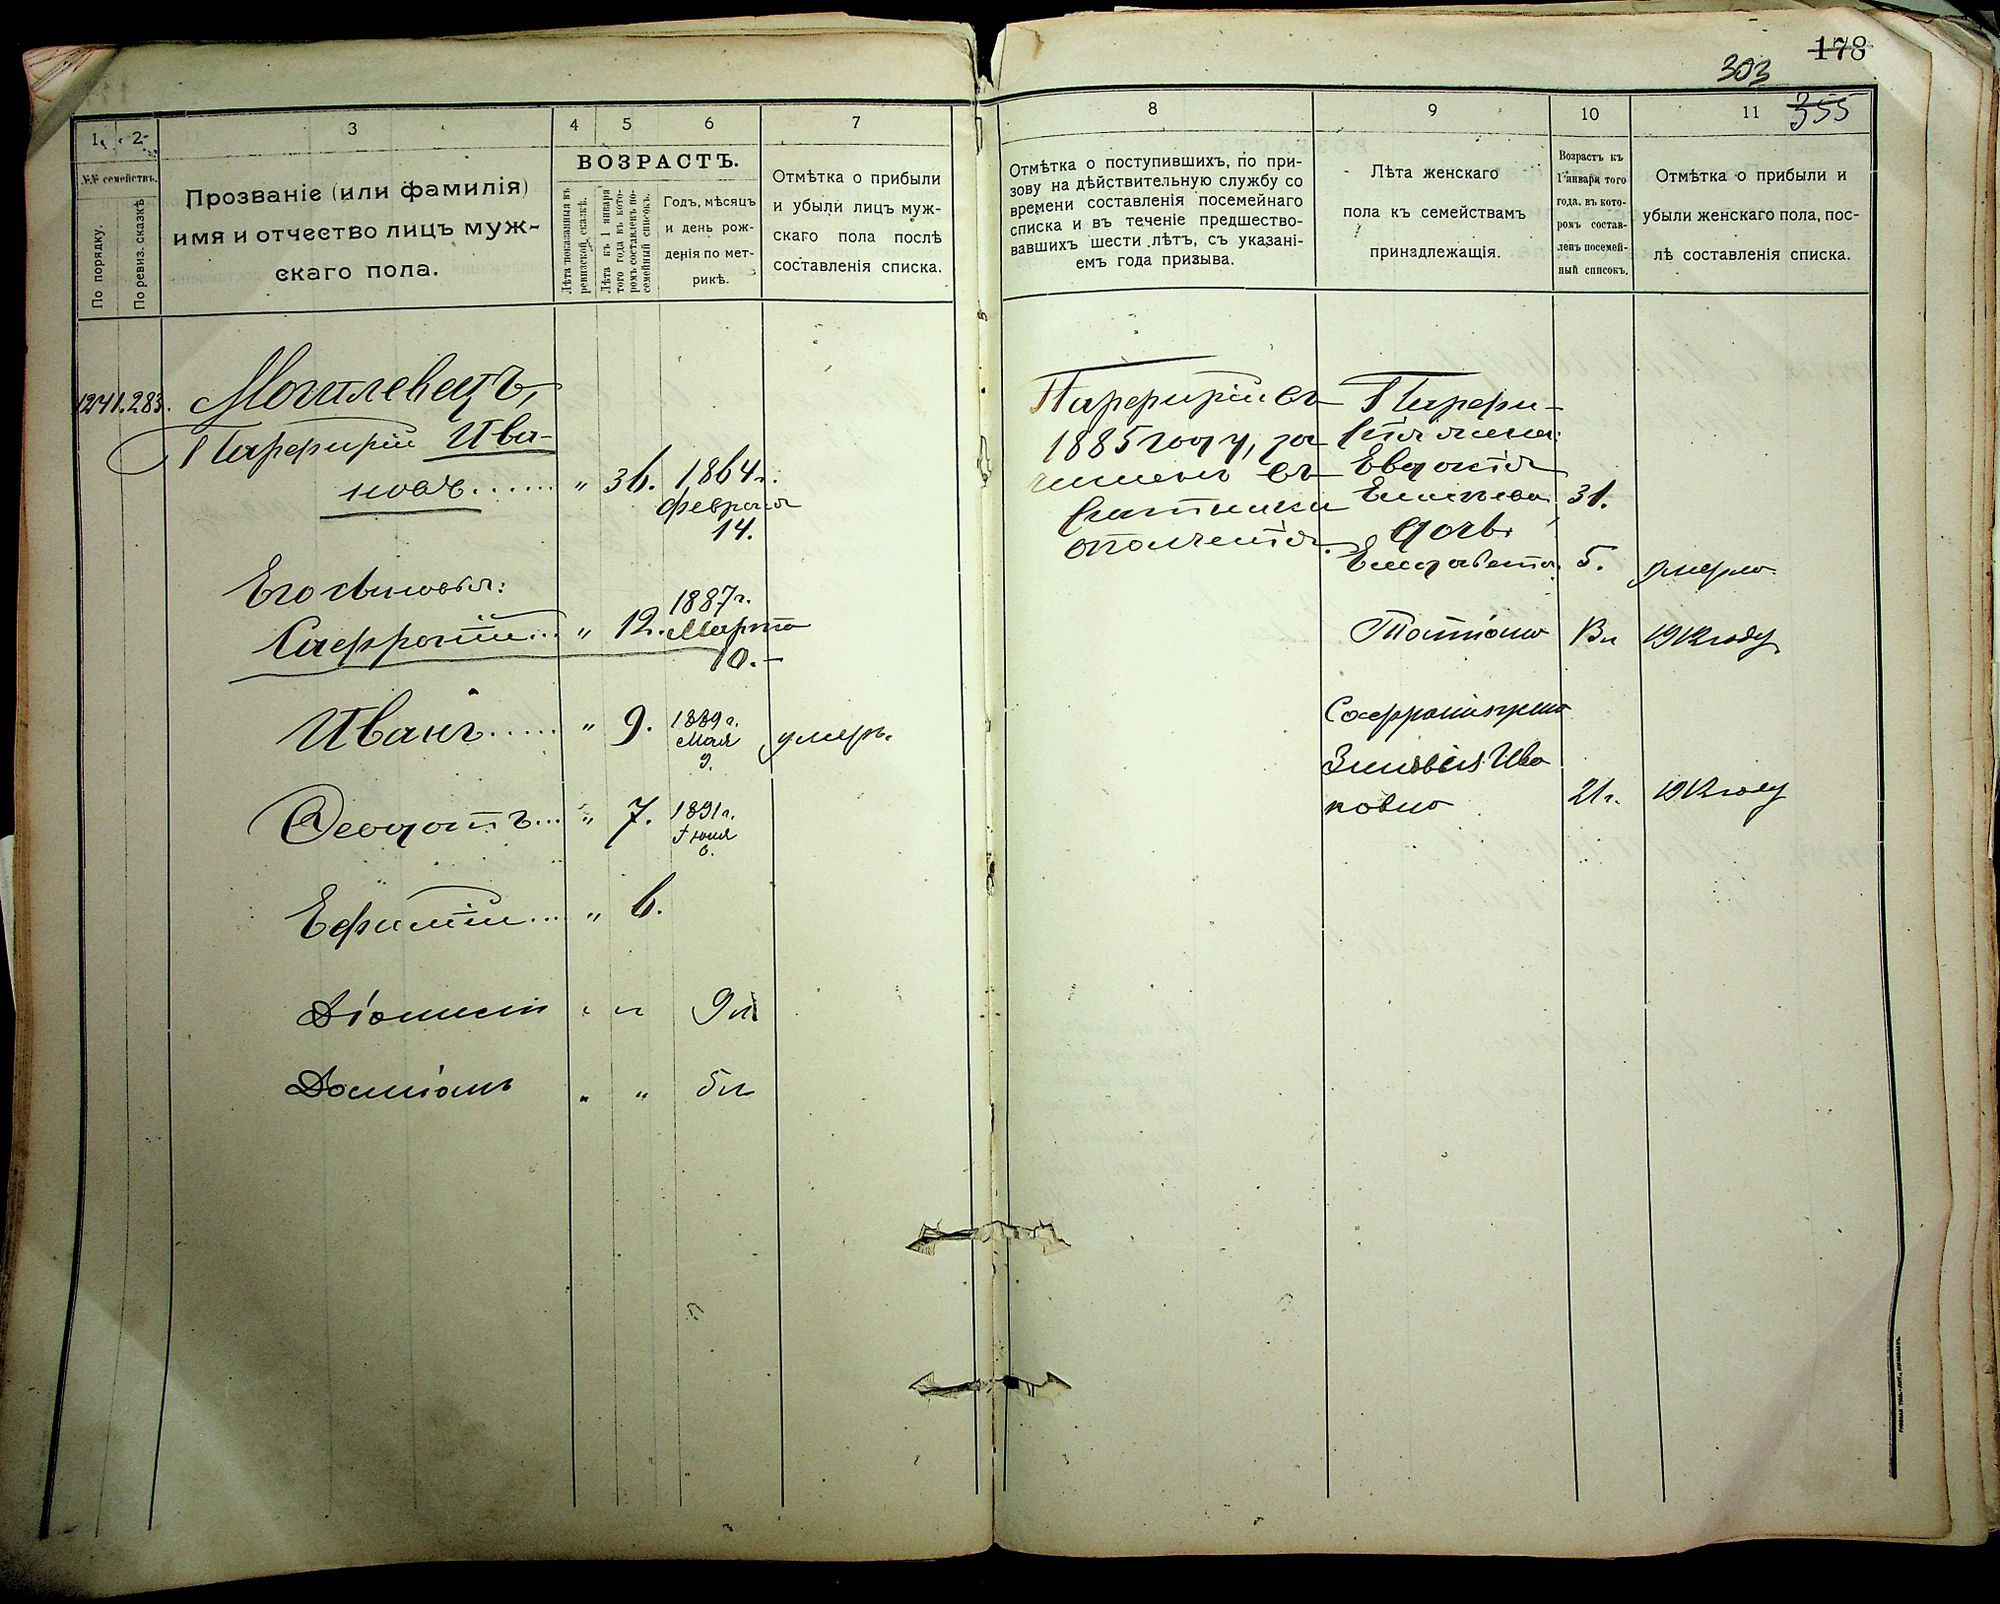 178
303
355
1. 2. 3 4 5 6 7
№№ семействъ.
По порядку.
По ревиз. сказкѣ
Прозваніе (или фамилія)
имя и отчество лицъ муж-
скаго пола.
ВОЗРАСТЪ.
Лѣта показанныя въ
ревизской сказкѣ.
Лѣта къ 1 января
того года въ кото-
ромъ составленъ по-
семейный списокъ.
Годъ, мѣсяцъ
и день рож-
денія по мет-
рикѣ.
Отмѣтка о прибыли
и убыли лицъ муж-
скаго пола послѣ
составленія списка.
1241. 283. Могилевецъ,
Парфирій Ива-
новъ...... " 36. 1864 г.
Февраля
14.
Его сыновья:
Сафроній... " 12. 1887 г.
Марта
10.-
Иванъ..... " 9. 1889 г. умеръ.
Мая
9.
Феодотъ... " 7. 1891 г.
Іюня
6.
Ефимій.... " 6.
Діонисій " " 9 л
Даміанъ " " 5 л
8 9 10 11
Отмѣтка о поступившихъ, по при-
зову на дѣйствительную службу со
времени составленія посемейнаго
списка и въ теченіе предшество-
вавшихъ шести лѣтъ, съ указані-
емъ года призыва.
Лѣта женскаго
пола къ семействамъ
принадлежащія.
Возрастъ къ
1 января того
года, въ кото-
ромъ состав-
ленъ посемей-
ный списокъ.
Отмѣтка о прибыли и
убыли женскаго пола, пос-
лѣ составленія списка.
Парфирій въ
1885 году, за
численъ въ
ратники
ополченія.
Парфи-
рія жена:
Евдокія
31.
дочь.
Елисавета. 5. умерла.
Татіана 13 л 1912 году
Сафронія жена
Зиновія Ива
новна 21 г. 1912 году